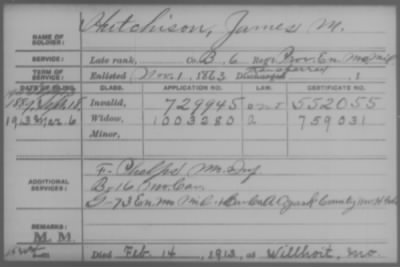 NAME OF SOLDIER: Hutchison, James M.
SERVICE: Late rank, Co. B, 6 Reg't Prov. En. Mo. Mil.
TERM OF SERVICE: Enlisted Nov. 1, 1863 Discharged transferred, 1
DATE OF FILING. CLASS. APPLICATION NO. LAW. CERTIFICATE NO.
Invalid, 729945 552055
1913 Mar 6 Widow, 1003280 a 759031
Minor,
ADDITIONAL SERVICES: F- Phelps Mo. Inf.
B-16 Mo. Cav.
G-73 En. Mo. Mil. Ozark County Mo. H.
REMARKS:
M. M.
Died Feb. 14, 1913, at Willhoit, Mo.